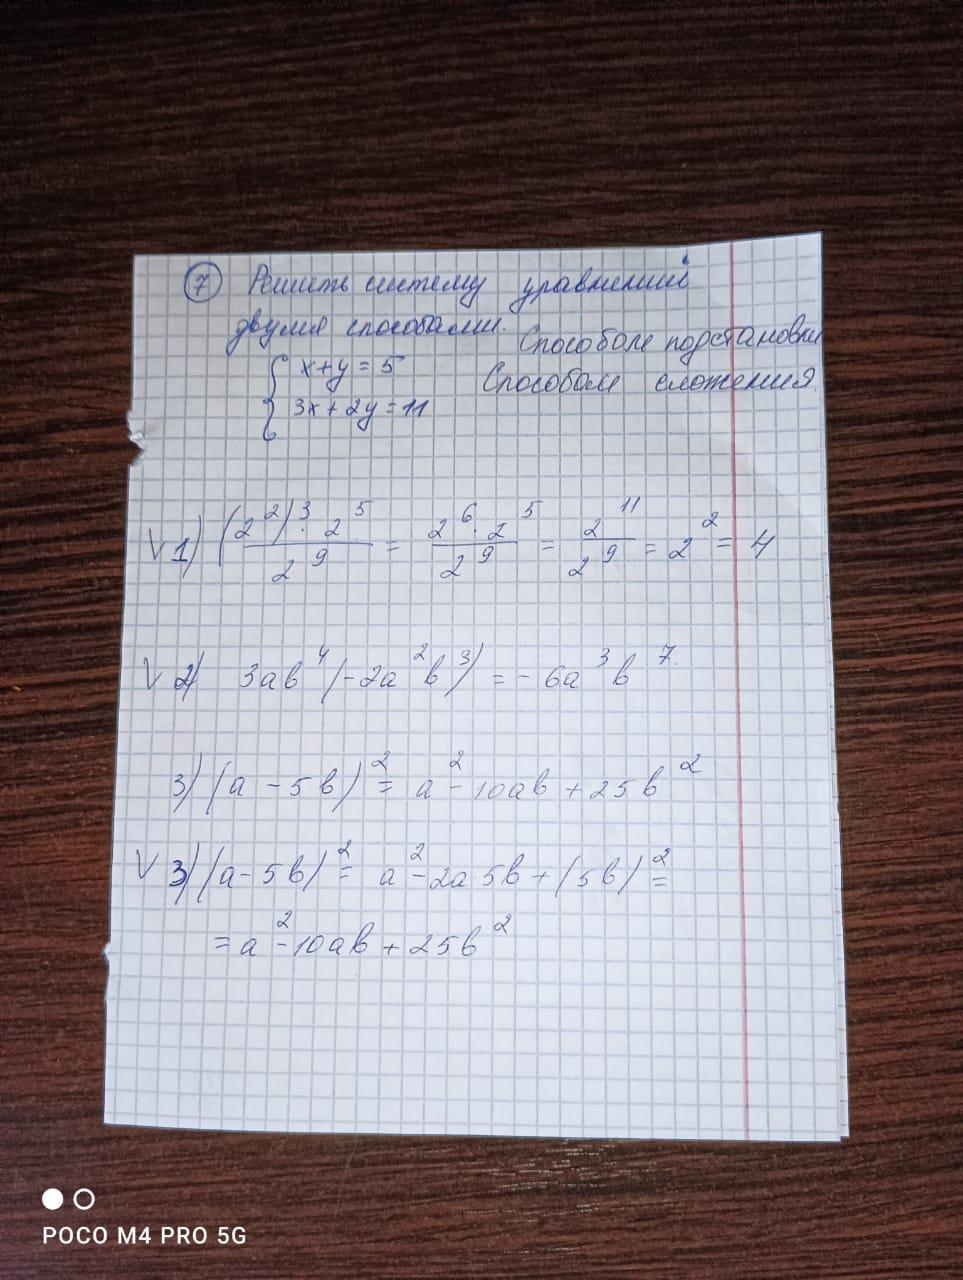 7 Решить систему уравнений
двумя способами.
Способом подстановки
{ x+y=5
Способом сложения.
3x+2y=11
V 1) (2²)³·2⁵/2⁹ = 2⁶·2⁵/2⁹ = 2¹¹/2⁹ = 2² = 4
V 2) 3ab⁴(-2a²b³) = -6a³b⁷.
3) (a-5b)² = a²-10ab+25b²
V 3) (a-5b)² = a²-2a·5b+(5b)² =
= a²-10ab+25b²
POCO M4 PRO 5G